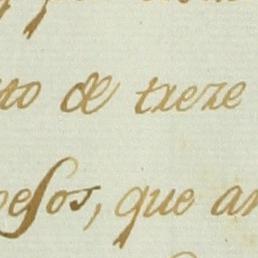 to de treze
pesos, que an